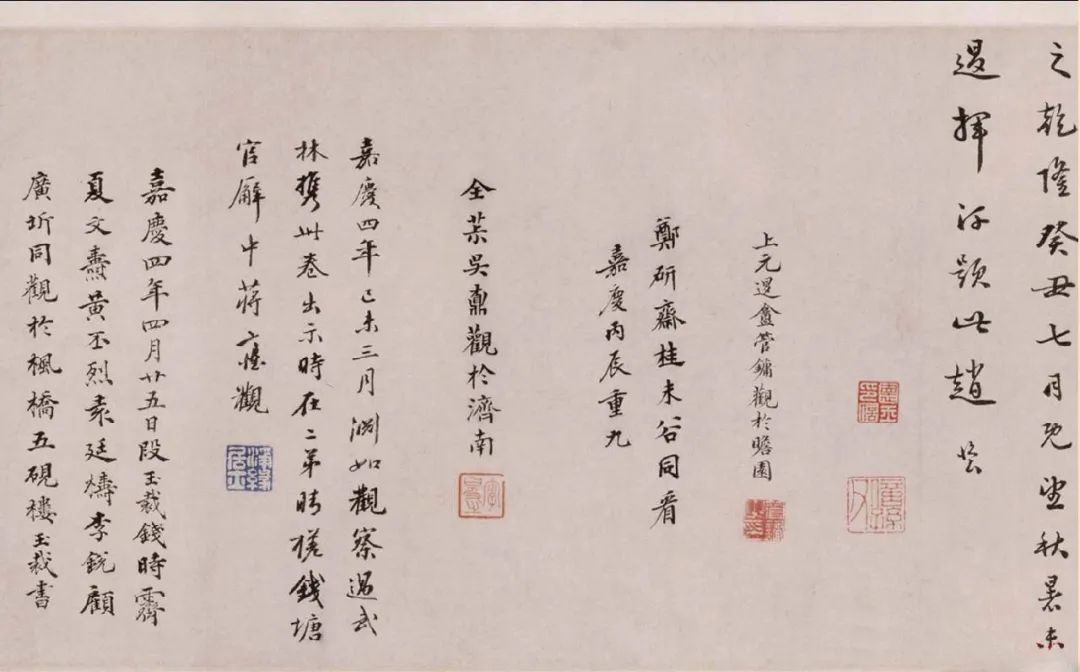 之乾隆癸丑七月既望秋暑未
退揮汗題此趙
上元退盦管鏞觀於瞻園
鄭研齋桂未谷同看
嘉慶丙辰重九
全茮吳鼒觀於濟南
嘉慶四年己未三月淵如觀察過武
林攜此卷出示時在二弟時錢塘
官廨中蔣觀
嘉慶四年四月廿五日段玉裁錢時霽
夏文燾黃丕烈袁廷檮李銳顧
廣圻同觀於楓橋五硯樓玉裁書